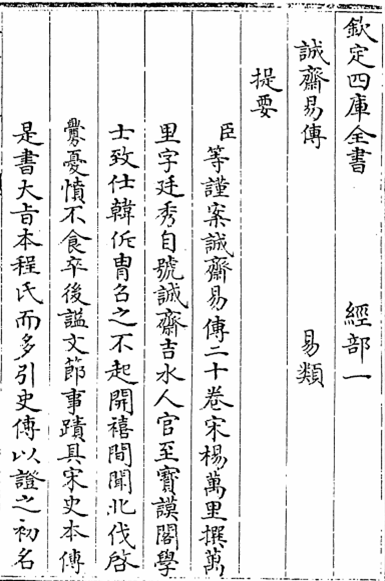 欽定四庫全書　經部一
誠齋易傳　易類
提要
臣等謹案誠齋易傳二十卷宋楊萬里撰萬
里字廷秀自號誠齋吉水人官至寳謨閣學
士致仕韓侂胄召之不起開禧間聞北伐啓
釁憂憤不食卒後諡文節事蹟具宋史本傳
是書大㫖本程氏而多引史傳以證之初名